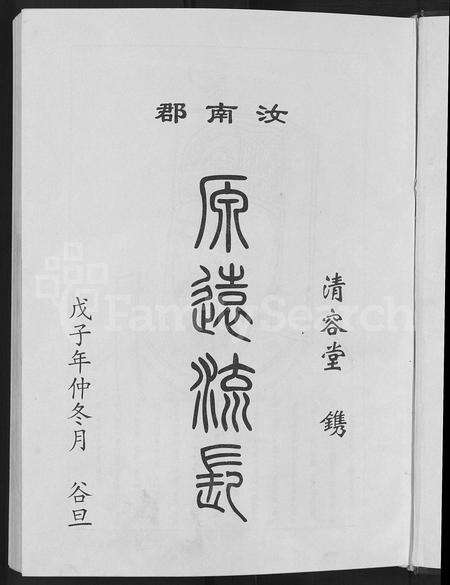 汝南郡
清容堂 鐫
原遠流長
戊子年仲冬月 谷旦
FamilySearch